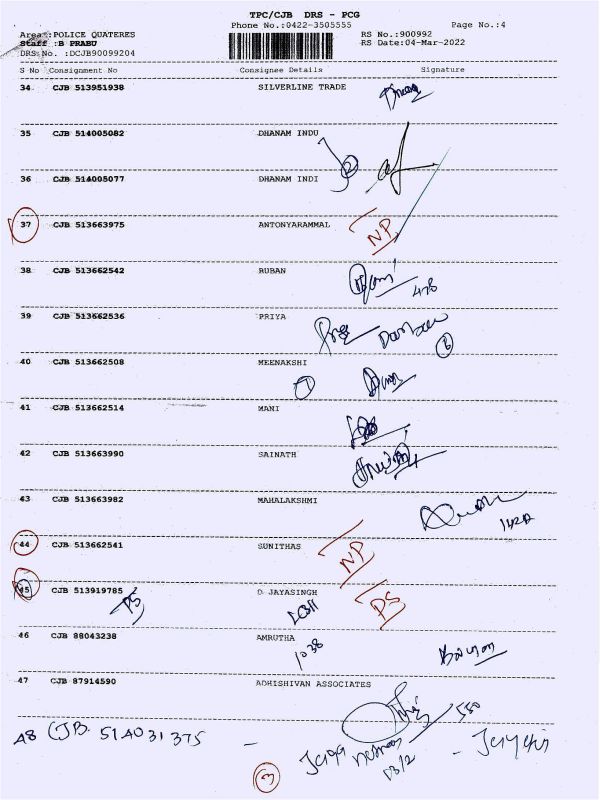 TPC/CJB DRS - PCG
Phone No.:0422-3505555 Page No.:4
Area :POLICE QUATERES RS No.:900992
Staff :B PRABU RS Date:04-Mar-2022
DRS No. :DCJB90099204
S No Consignment No Consignee Details Signature
34 CJB 513951938 SILVERLINE TRADE
35 CJB 514005082 DHANAM INDU
36 CJB 514005077 DHANAM INDI
37 CJB 513663975 ANTONYARAMMAL NP
38 CJB 513662542 RUBAN
478
39 CJB 513662536 PRIYA
6
40 CJB 513662508 MEENAKSHI
41 CJB 513662514 MANI
42 CJB 513663990 SAINATH
43 CJB 513663982 MAHALAKSHMI
44 CJB 513662541 SUNITHAS NP
45 CJB 513919785 D JAYASINGH PS
PS
46 CJB 88043238 AMRUTHA
1038
47 CJB 87914590 ADHISHIVAN ASSOCIATES
550
48 CJB 514031375 -
3